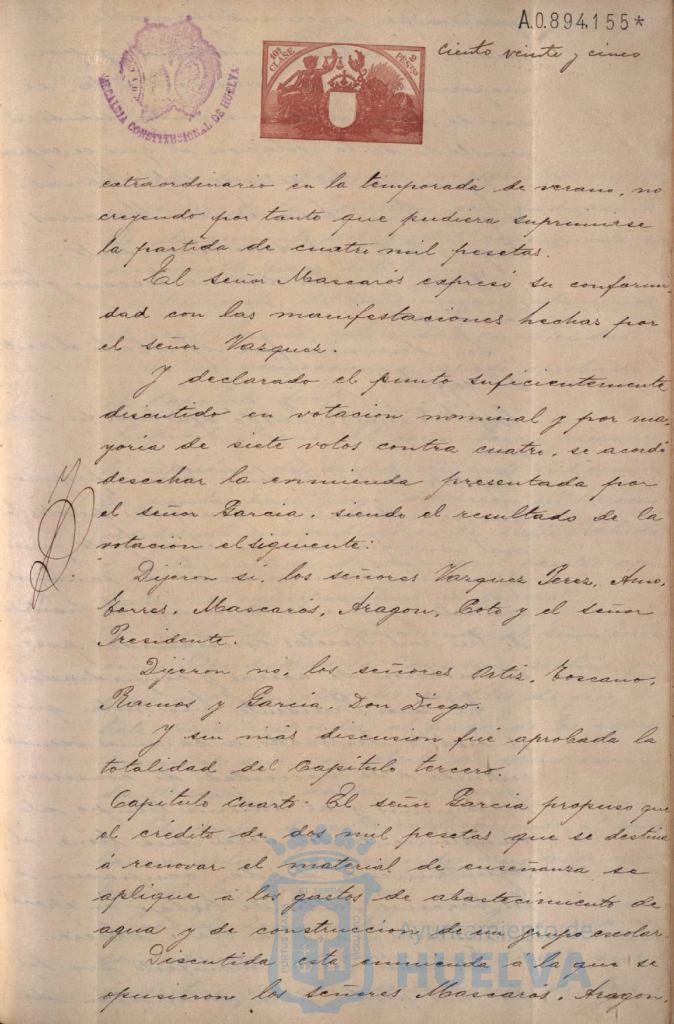 A.0.894,155*
ciento veinte y cinco
ALCALDIA CONSTITUCIONAL DE HUELVA
10ª CLASE
2 PESETAS
extraordinario en la temporada de verano, no
creyendo por tanto que pudiera suprimirse
la partida de cuatro mil pesetas.
El señor Mascarós expresó su conformi-
dad con las manifestaciones hechas por
el señor Vazquez.
Y declarado el punto suficientemente
discutido en votacion nominal y por ma-
yoria de siete votos contra cuatro, se acordó
desechar la enmienda presentada por
el señor Garcia, siendo el resultado de la
votacion el siguiente:
Dijeron si, los señores Vazquez Perez, Amo,
Torres, Mascarós, Aragon, Coto y el señor
Presidente.
Dijeron no, los señores Ortiz, Toscano,
Ramos y Garcia, Don Diego.
Y sin más discusion fué aprobada la
totalidad del Capitulo tercero.
Capitulo cuarto. El señor Garcia propuso que
el crédito de dos mil pesetas que se destina
á renovar el material de enseñanza se
aplique á los gastos de abastecimiento de
agua y de construccion de un grupo escolar.
Discutida esta enmienda a la que se
opusieron los señores Mascaros, Aragon,
Ayuntamiento de
HUELVA